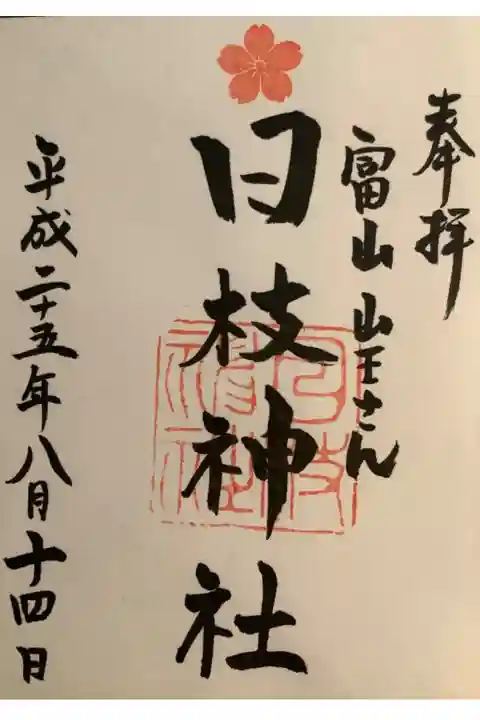 奉拝
富山山王さん
日枝神社
平成二十五年八月十四日
日枝神社